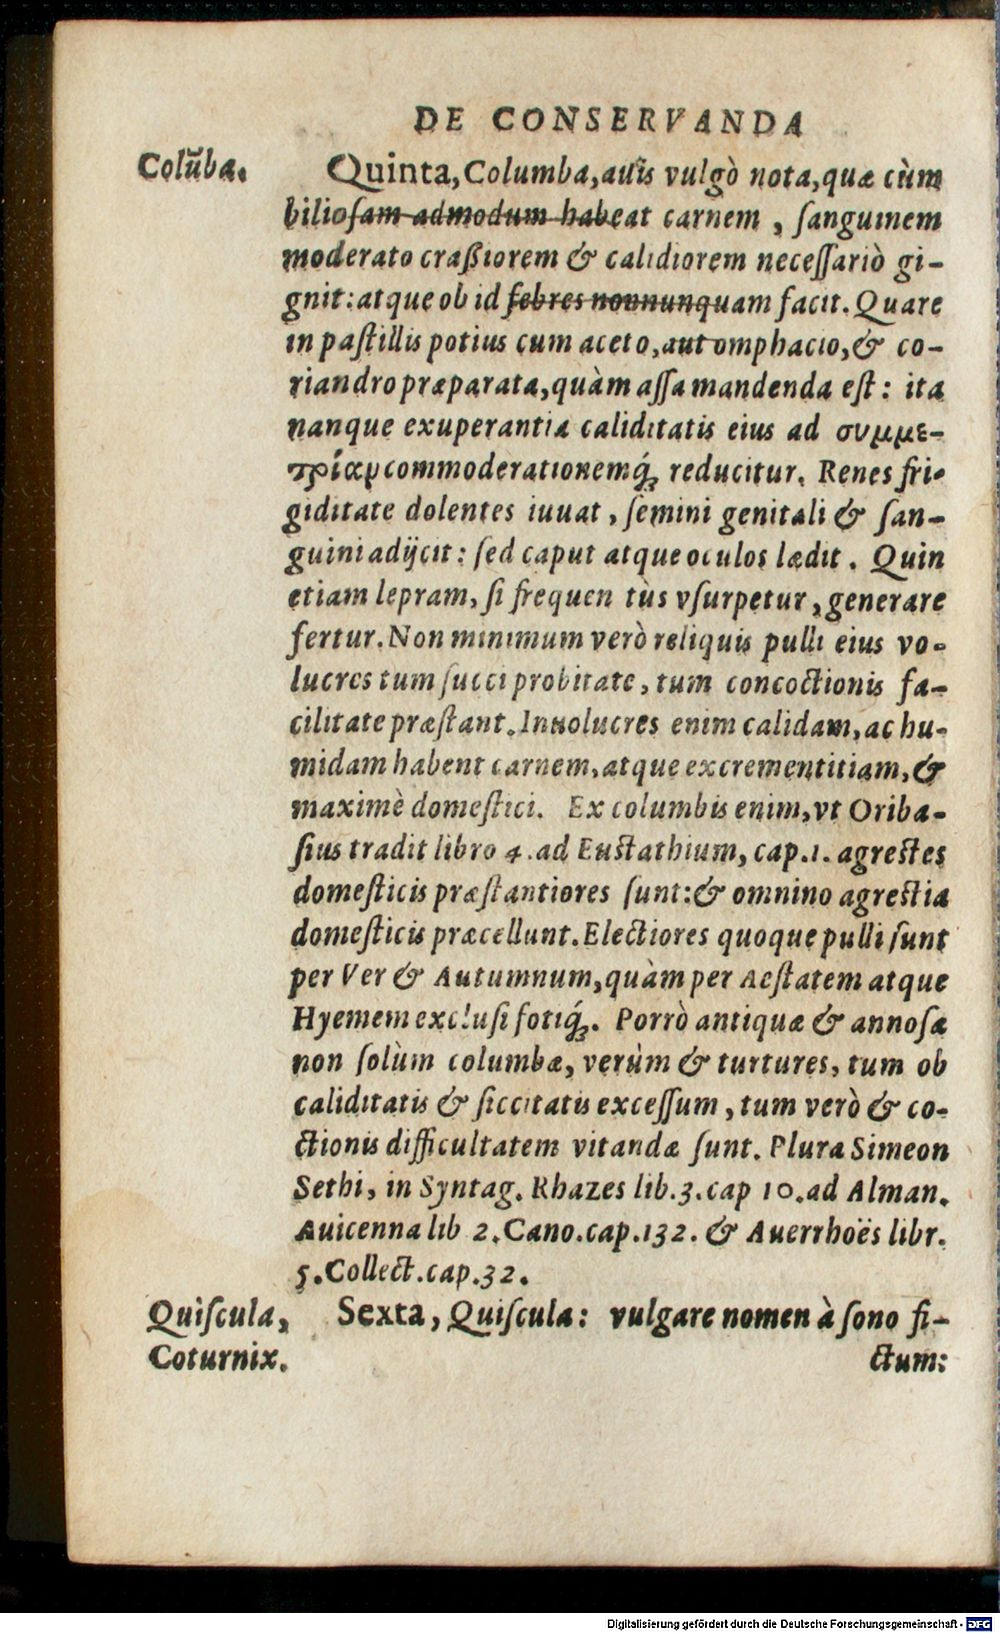 DE CONSERVANDA
Colūba.
Quinta, Columba, auis vulgò nota, quæ cùm
biliosam admodum habeat carnem, sanguinem
moderato craßiorem & calidiorem necessariò gi-
gnit: atque ob id febres nonnunquam facit. Quare
in pastillis potius cum aceto, aut omphacio, & co-
riandro præparata, quàm assa mandenda est: ita
nanque exuperantia caliditatis eius ad συμμε-
τρίαν commoderationemq́; reducitur. Renes fri-
giditate dolentes iuuat, semini genitali & san-
guini adijcit: sed caput atque oculos lædit. Quin
etiam lepram, si frequen tùs vsurpetur, generare
fertur. Non minimum verò reliquis pulli eius vo-
lucres tum succi probitate, tum concoctionis fa-
cilitate præstant. Inuolucres enim calidam, ac hu-
midam habent carnem, atque excrementitiam, &
maximè domestici. Ex columbis enim, vt Oriba-
sius tradit libro 4. ad Eustathium, cap. 1. agrestes
domesticis præstantiores sunt: & omnino agrestia
domesticis præcellunt. Electiores quoque pulli sunt
per Ver & Autumnum, quàm per Aestatem atque
Hyemem exclusi fotiq́;. Porrò antiquæ & annosæ
non solùm columbæ, verùm & turtures, tum ob
caliditatis & siccitatis excessum, tum verò & co-
ctionis difficultatem vitandæ sunt. Plura Simeon
Sethi, in Syntag. Rhazes lib. 3. cap 10. ad Alman.
Auicenna lib 2. Cano. cap. 132. & Auerrhoës libr.
5. Collect. cap. 32.
Quiscula,
Coturnix.
Sexta, Quiscula: vulgare nomen à sono fi-
ctum:
Digitalisierung gefördert durch die Deutsche Forschungsgemeinschaft - DFG